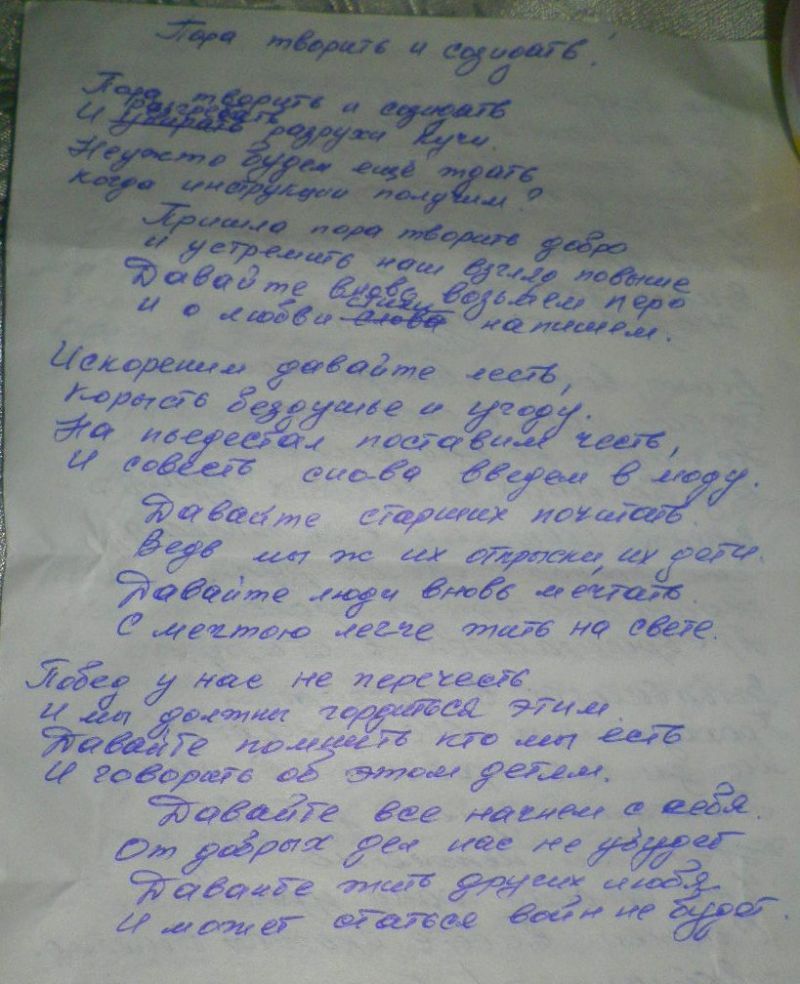 Пора творить и созидать!
Пора творить и созидать
разгребать
И убирать разрухи кучи.
Неужто будем ещё ждать
Когда инструкции получим?
Пришла пора творить добро
И устремить наш взгляд повыше
Давайте вновь возьмем перо
стихи
И о любви слова напишем.
Искореним давайте лесть,
Корысть бездушье и угоду.
На пьедестал поставим честь,
И совесть снова введем в моду.
Давайте старших почитать.
Ведь мы ж их отпрыски, их дети.
Давайте люди вновь мечтать.
С мечтою легче жить на свете.
Побед у нас не перечесть
И мы должны гордиться этим.
Давайте помнить кто мы есть
И говорить об этом детям.
Давайте все начнем с себя.
От добрых дел нас не убудет
Давайте жить других любя.
И может статься войн не будет.